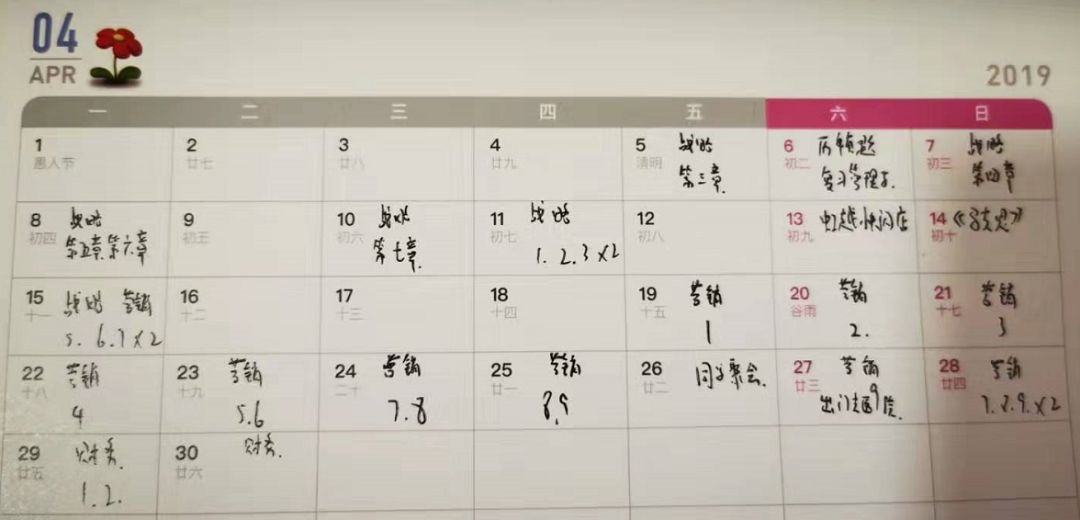 04
APR
2019
一 二 三 四 五 六 日
1 愚人节
2 廿七
3 廿八
4 廿九
5 清明 战略
第三章
6 初二 历年真题
复习管理学
7 初三 战略
第四章
8 初四 战略
第五章 第六章
9 初五
10 初六 战略
第七章
11 初七 战略
1.2.3×2
12 初八
13 初九 快闪店
14 初十
15 十一 战略 营销
5.6.7×2
16 十二
17 十三
18 十四
19 十五 营销
1
20 谷雨 营销
2.
21 十七 营销
3
22 十八 营销
4
23 十九 营销
5.6
24 二十 营销
7.8
25 廿一 营销
8.9
26 廿二 同学聚会.
27 廿三 营销
9
28 廿四 营销
7.8.9.×2
29 廿五 财务.
1.2.
30 廿六 财务.